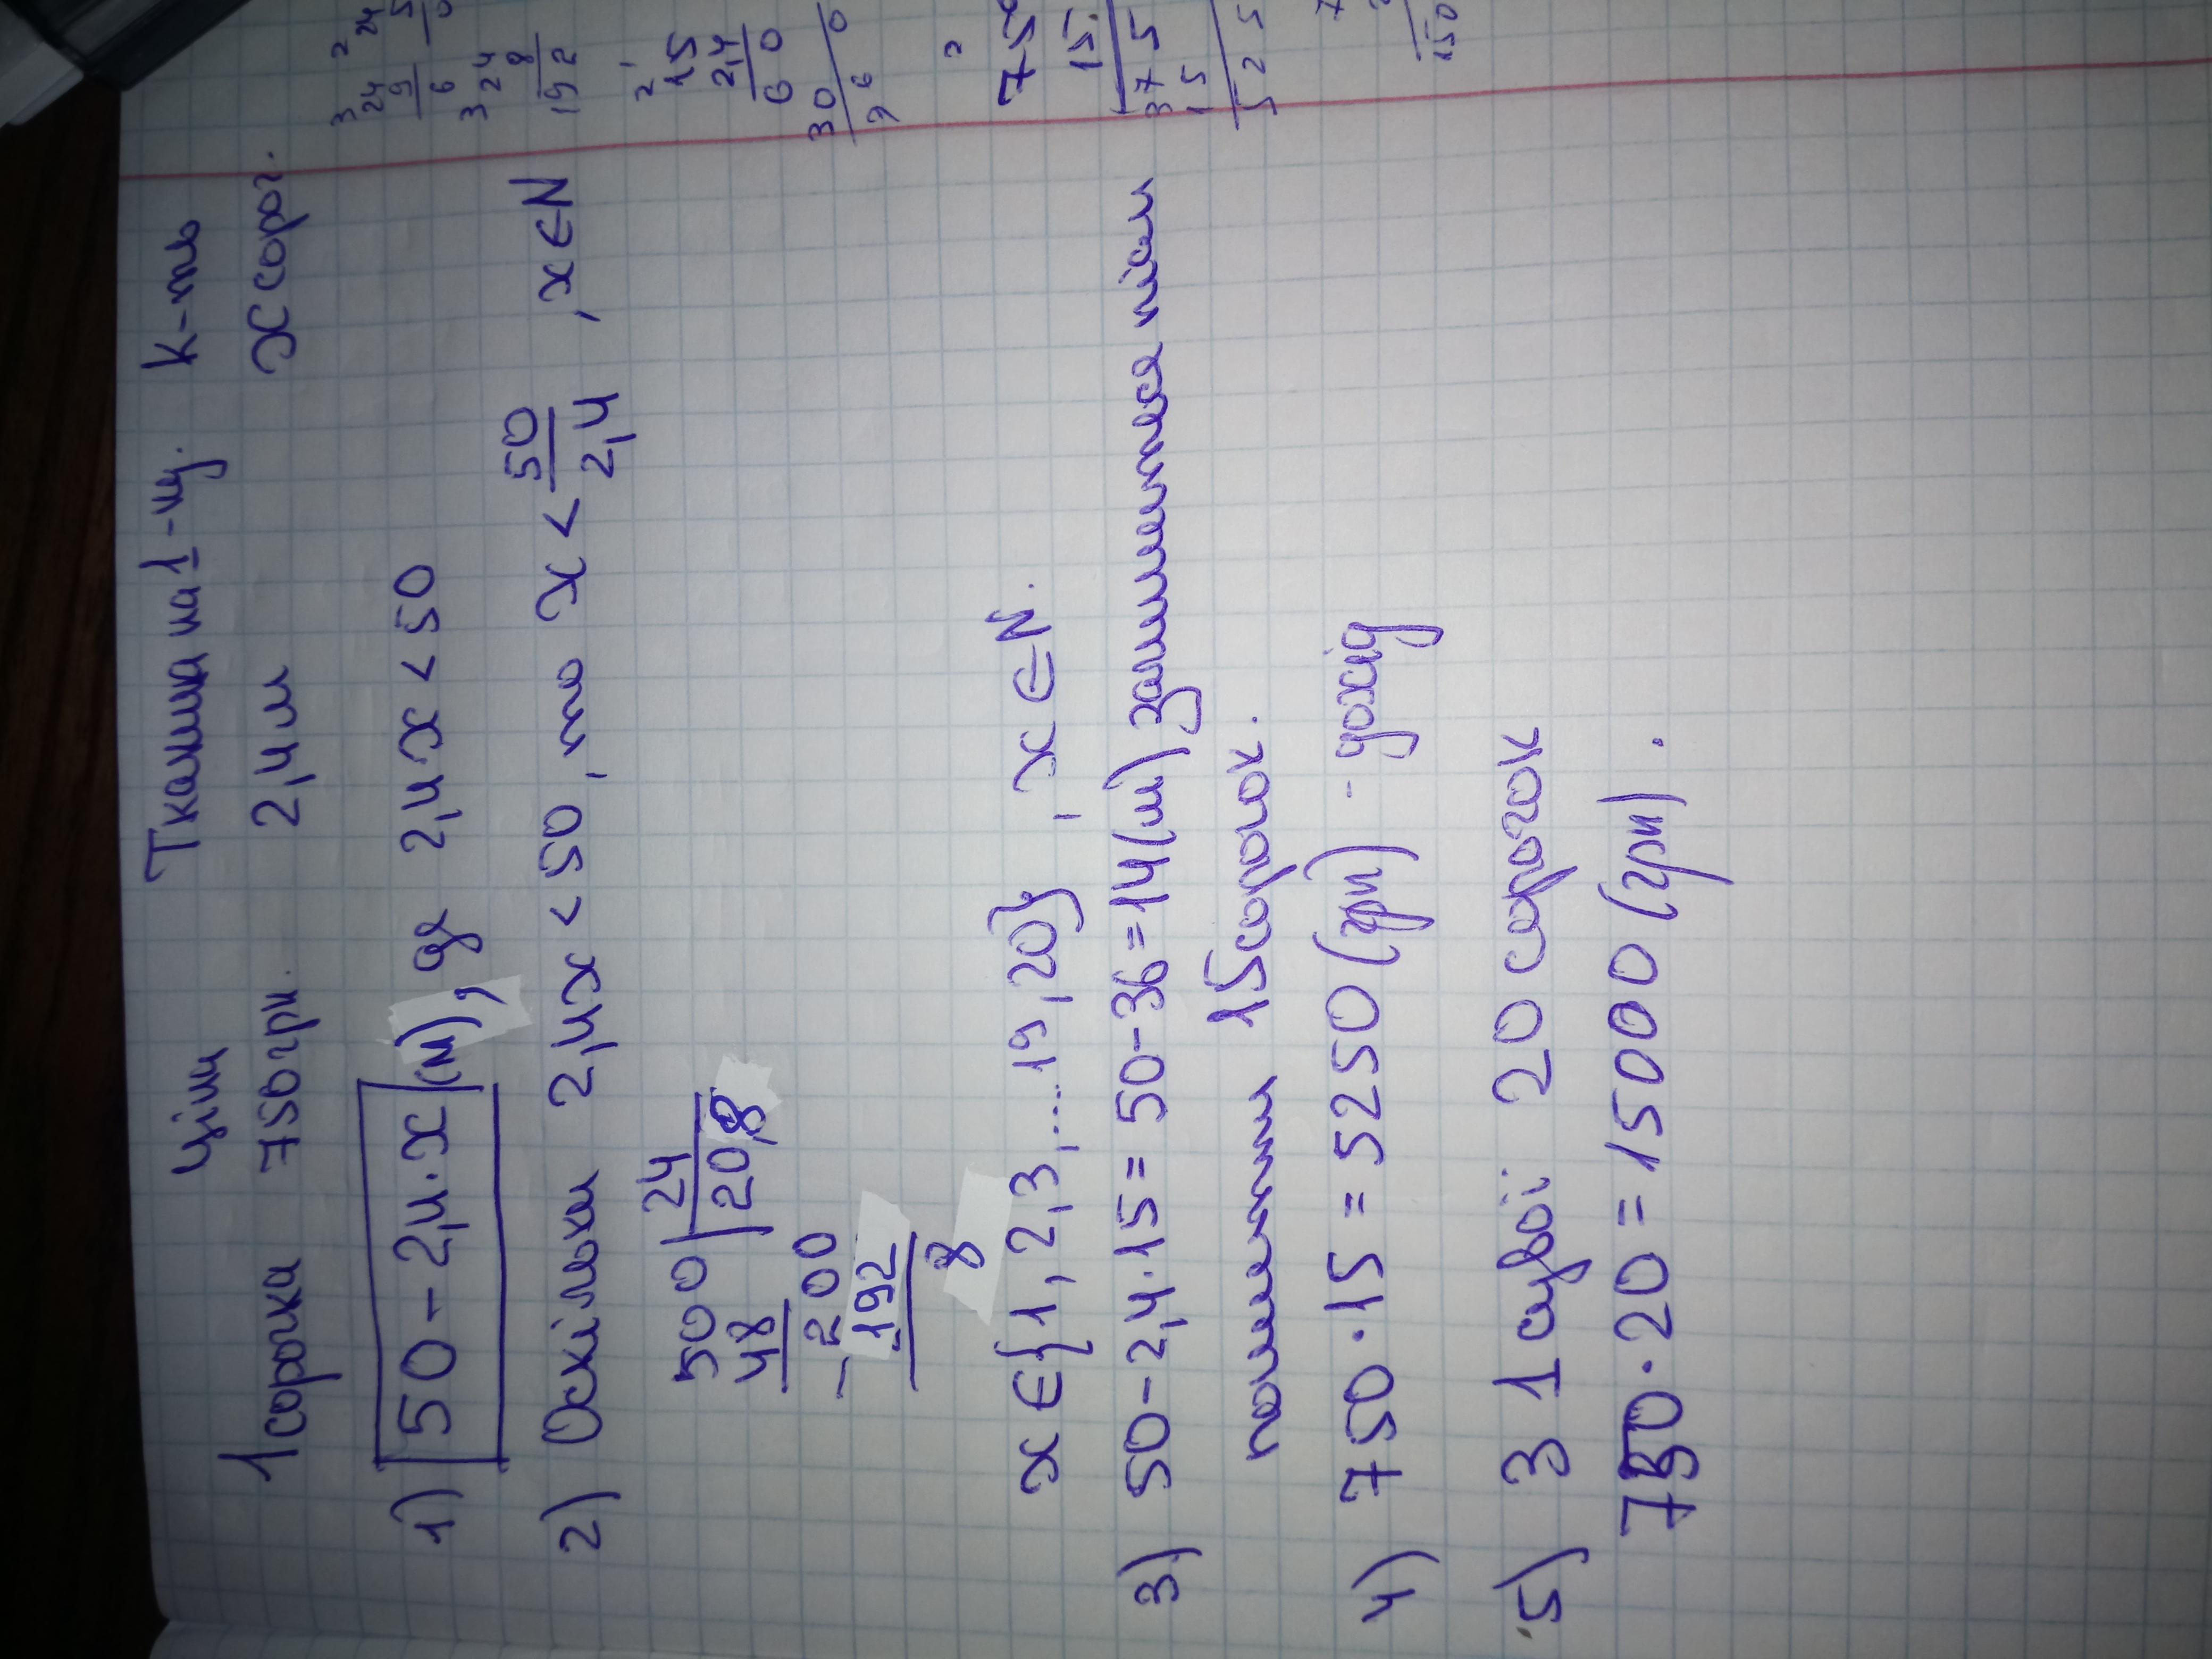 Ціна Тканина на 1-иц. К-ть
1 сорочка 750 грн. 2,4 м х сороч.
1) 50 - 2,4·x (м), де 2,4x < 50
2) Оскільки 2,4x < 50, то x < 50/2,4, x ∈ N
500 | 24
48 | 20,8
- 200
- 192
8
x ∈ {1, 2, 3, ... 19, 20}, x ∈ N.
3) 50 - 2,4·15 = 50 - 36 = 14 (м) залишиться після
пошиття 15 сорочок.
4) 750·15 = 5250 (грн) - дохід
5) З 1 сувої: 20 сорочок
750·20 = 15000 (грн).
3
24
9
6
3
24
8
192
2 1
15
2,4
6 0
30
9 6 0
15
37 5
15
5 2 5
150